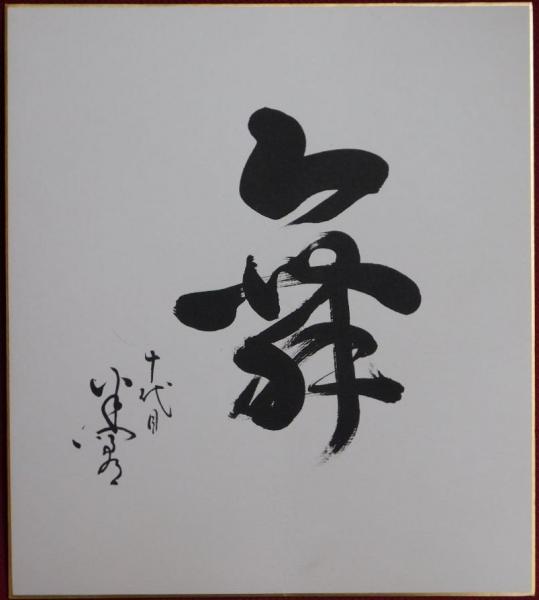 舞
十代目